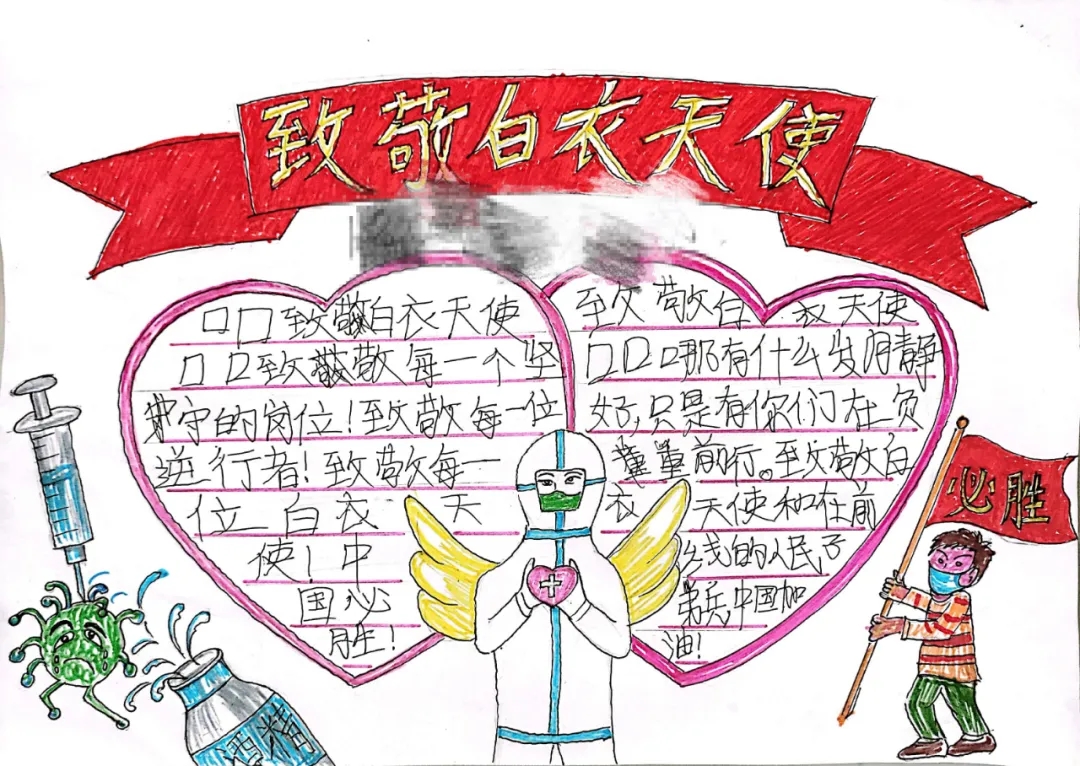 致敬白衣天使
口口致敬白衣天使
口口致敬敬每一个坚
守的岗位！致敬每一位
逆行者！致敬每一
位白衣天
使！中
国必
胜！
致敬白衣天使
口口口哪有什么岁月静
好，只是有你们在负
前行。致敬白
衣天使和在前
线的人民子
弟兵，中国加
油！
必胜
酒精